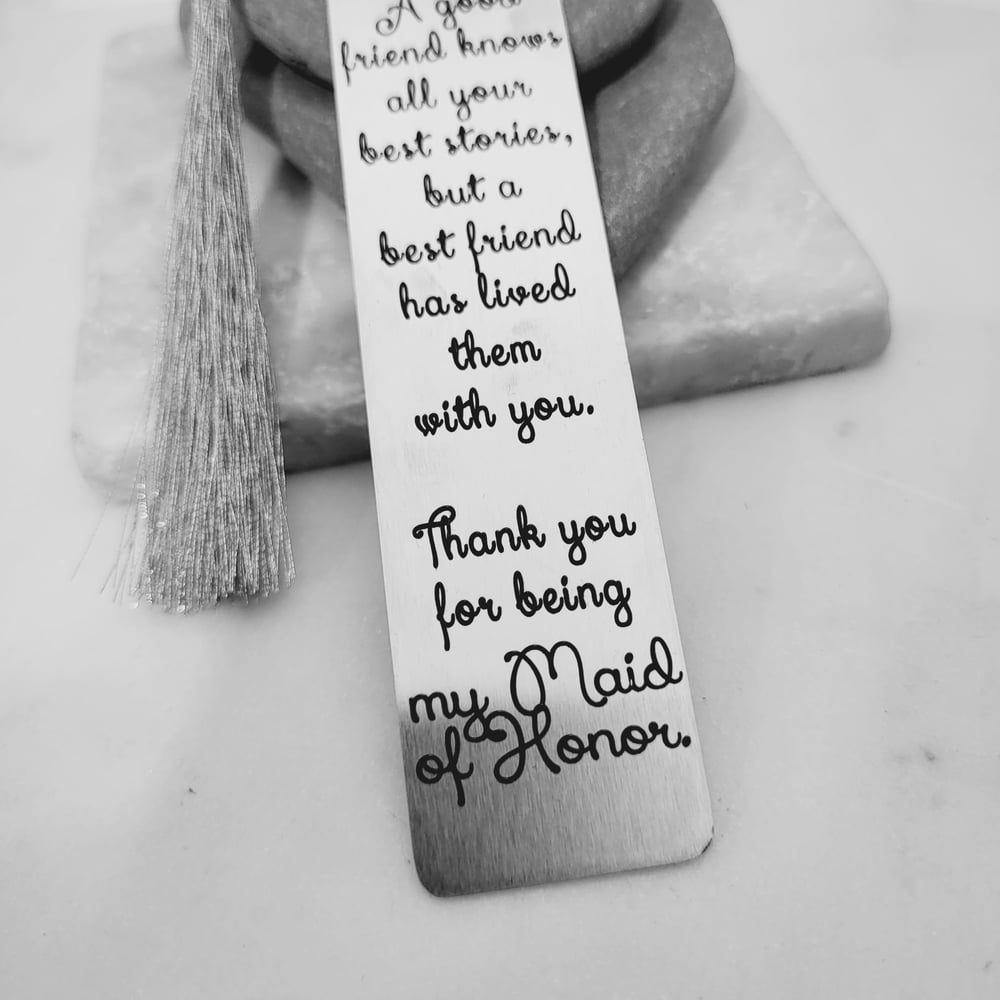 A good
friend knows
all your
best stories,
but a
best friend
has lived
them
with you.
Thank you
for being
my Maid
of Honor.